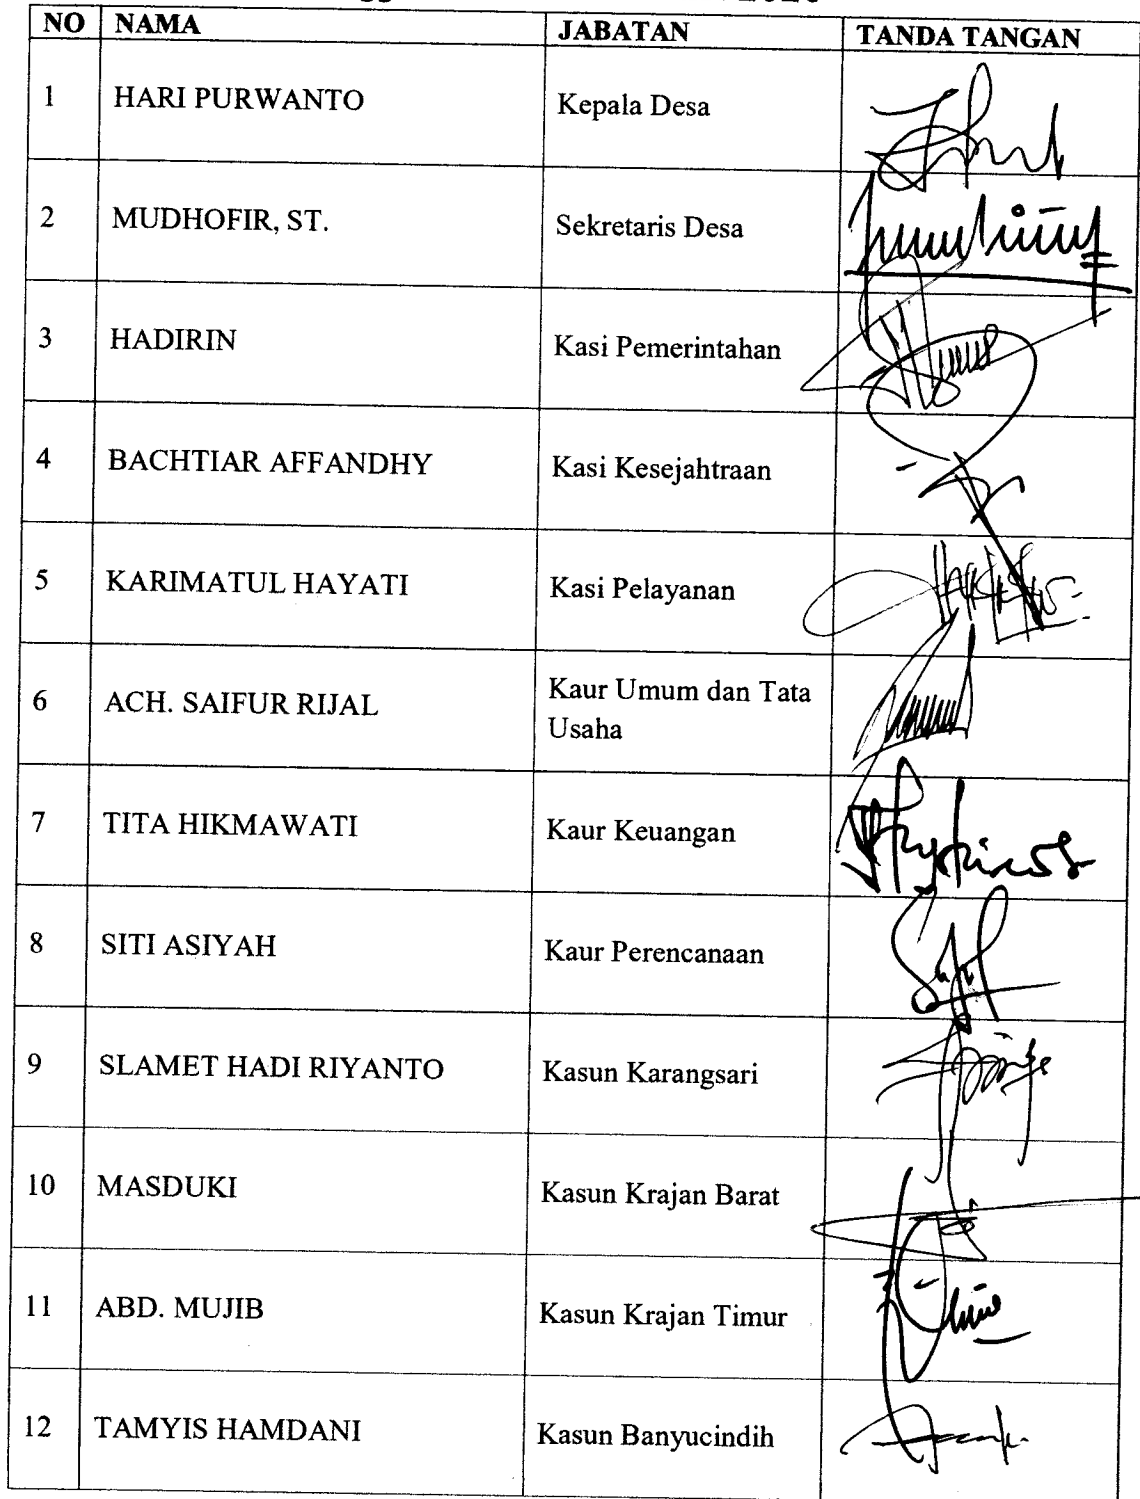 NO NAMA JABATAN TANDA TANGAN
1 HARI PURWANTO Kepala Desa
2 MUDHOFIR, ST. Sekretaris Desa
3 HADIRIN Kasi Pemerintahan
4 BACHTIAR AFFANDHY Kasi Kesejahtraan
5 KARIMATUL HAYATI Kasi Pelayanan
6 ACH. SAIFUR RIJAL Kaur Umum dan Tata
Usaha
7 TITA HIKMAWATI Kaur Keuangan
8 SITI ASIYAH Kaur Perencanaan
9 SLAMET HADI RIYANTO Kasun Karangsari
10 MASDUKI Kasun Krajan Barat
11 ABD. MUJIB Kasun Krajan Timur
12 TAMYIS HAMDANI Kasun Banyucindih